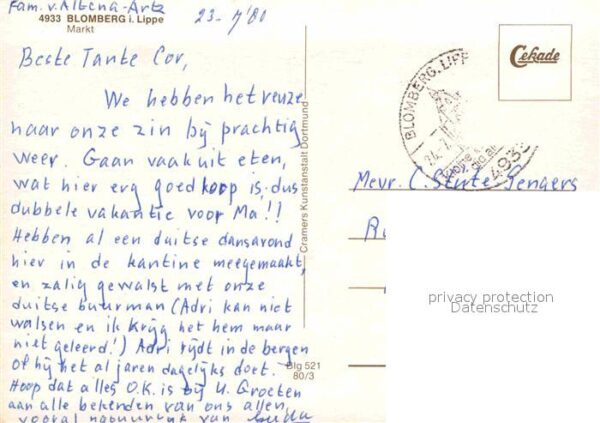 Fam. v. Altena-Artz
4933 BLOMBERG i. Lippe
Markt
23-7'80
Beste Tante Cor,
We hebben het reuze
naar onze zin bij prachtig
weer. Gaan vaak uit eten,
wat hier erg goedkoop is, dus
dubbele vakantie voor Ma!!
Hebben al een duitse dansavond
hier in de kantine meegemaakt,
en zalig gewalst met onze
duitse buurman (Adri kan niet
walsen en ik krijg het hem maar
niet geleerd!) Adri rijdt in de bergen
of hij het al jaren dagelijks doet.
Hoop dat alles O.K. is bij U. Groeten
aan alle bekenden van ons allen,
vooral natuurlijk van
Cramers Kunstanstalt Dortmund
Blg 521
80/3
Cekade
BLOMBERG, LIPP
4933
Mevr. C. Stute-Sengers
privacy protection
Datenschutz